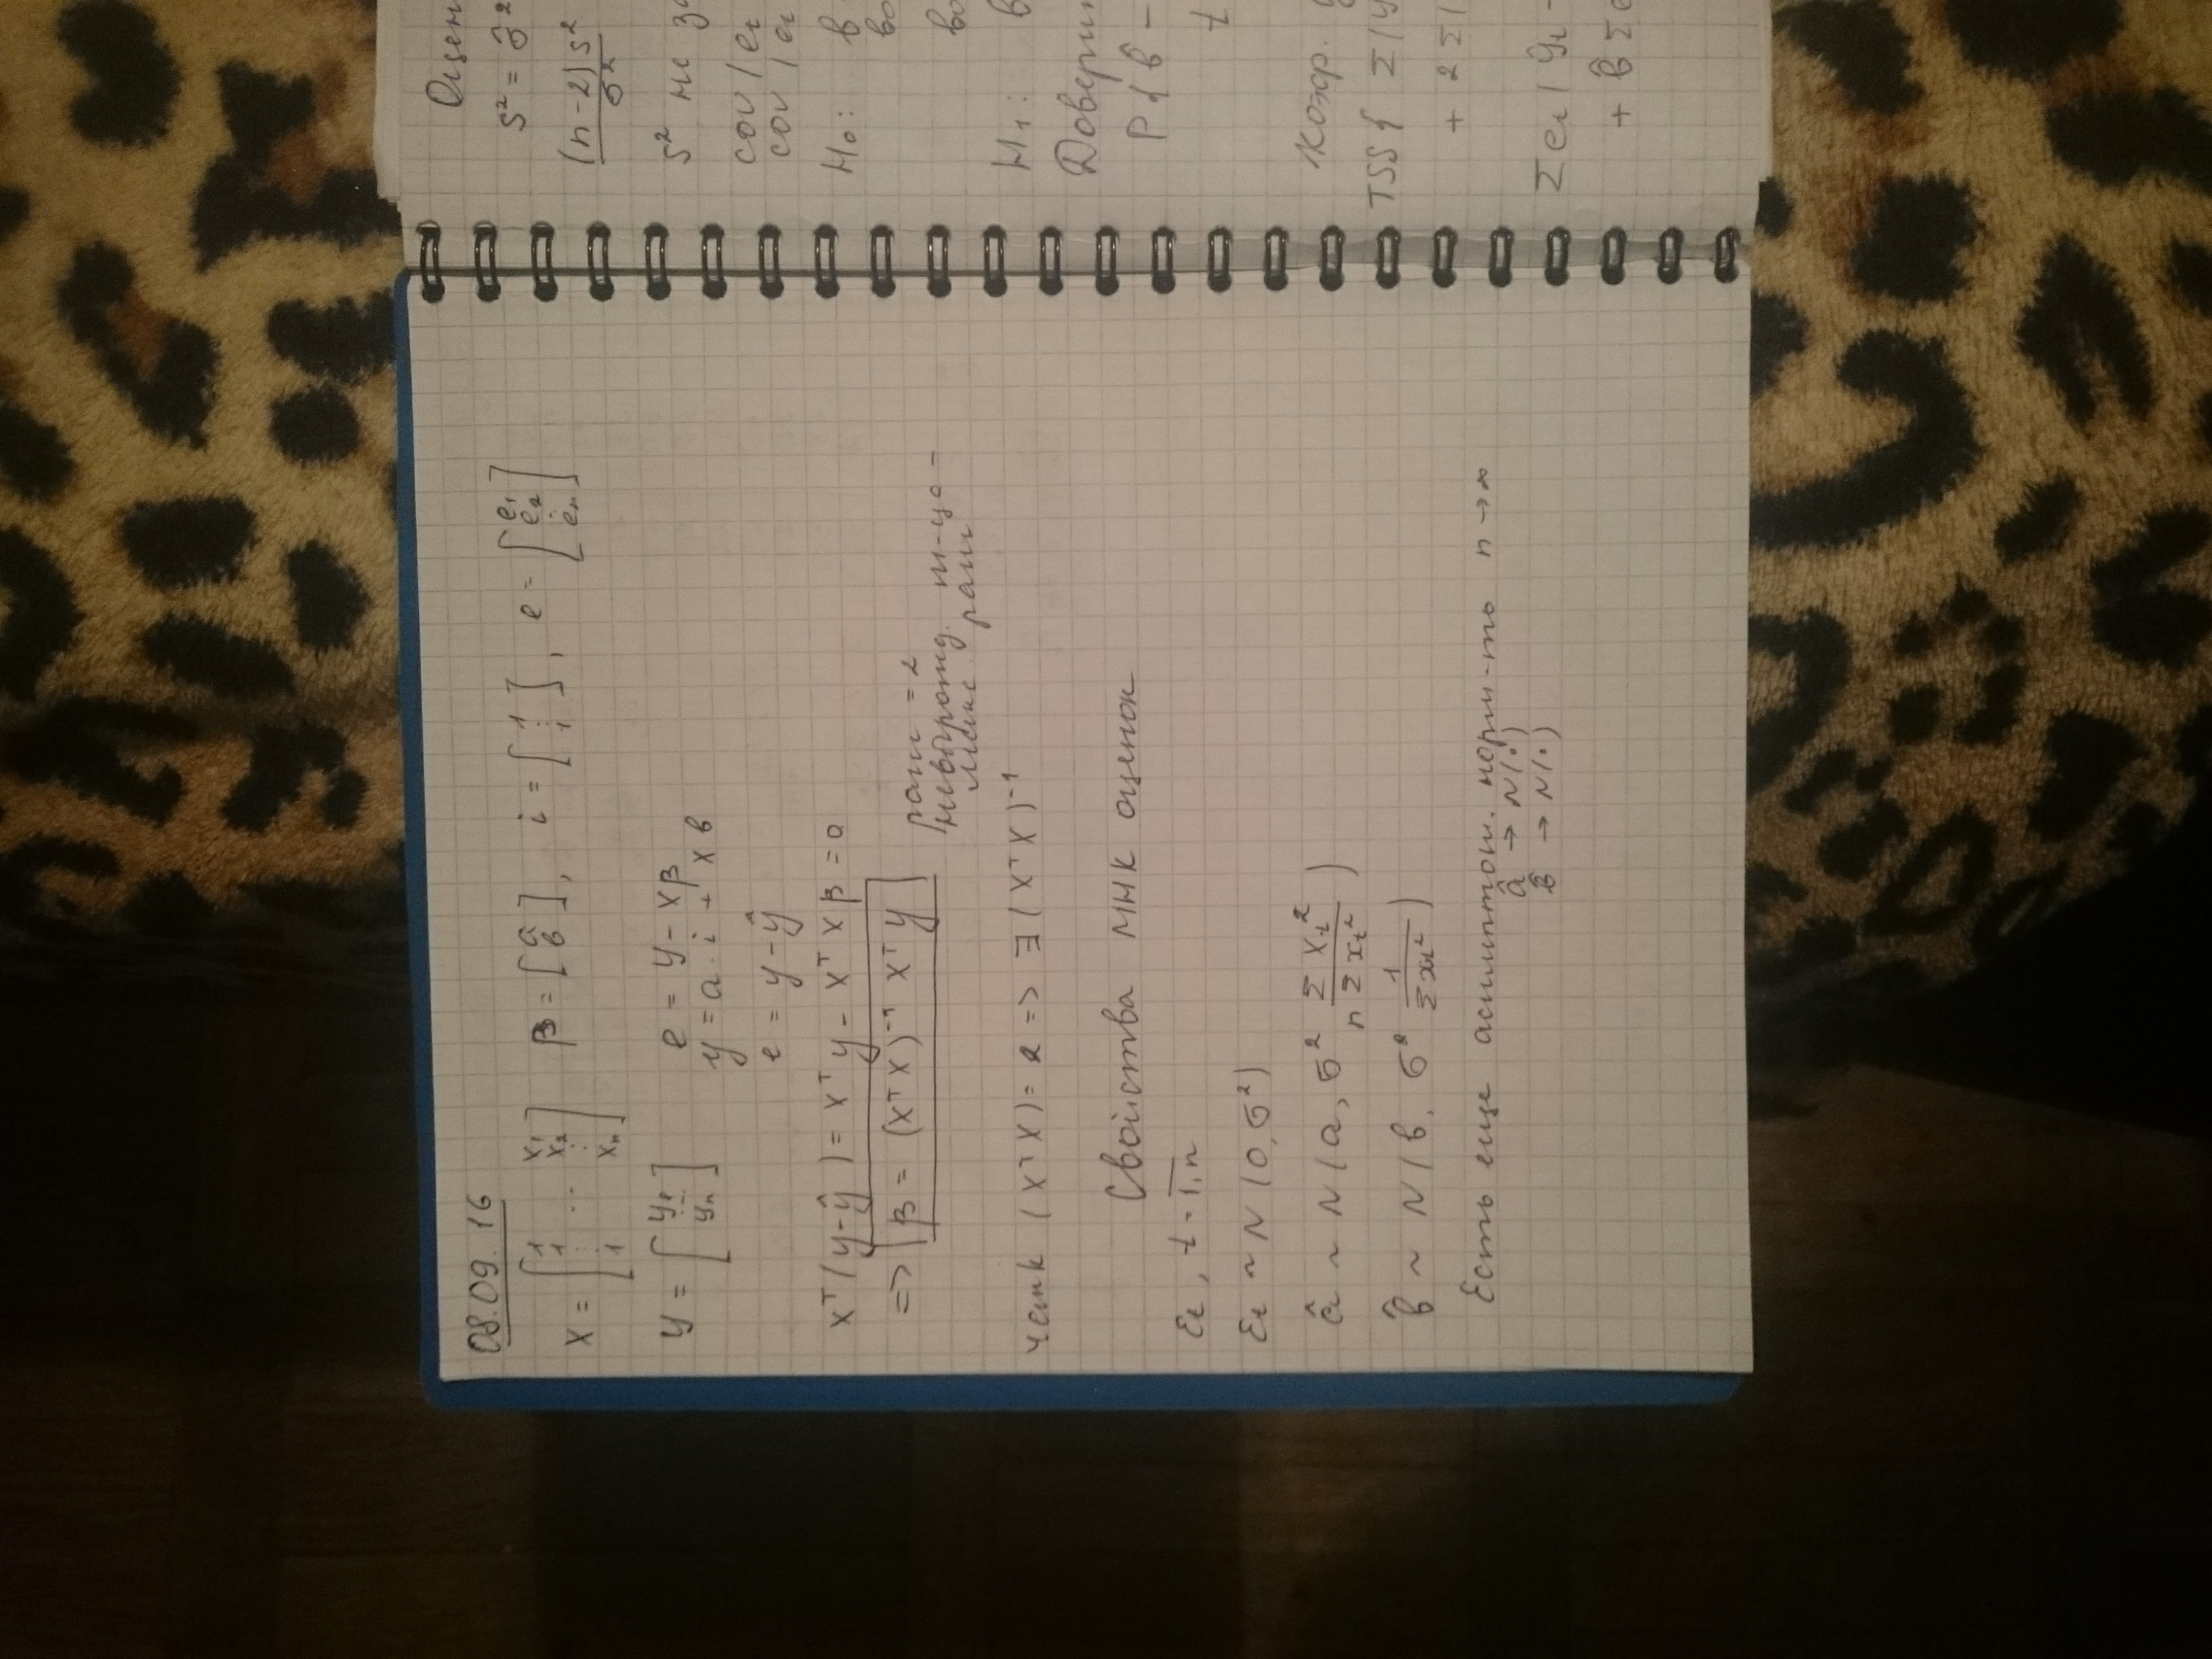 08.09.16
X = [1 x₁ 1 x₂ ⋮ ⋮ 1 xₙ] β = [a в], i = [1 ⋮ 1], e = [e₁ e₂ ⋮ eₙ]
y = [y₁ ⋮ yₙ] e = y - xβ
y = a·i + x в
e = y - ŷ
xᵀ(y-ŷ) = xᵀy - xᵀxβ = 0
=> β = (xᵀx)⁻¹ xᵀy
ранг = 2
невырожд. м-ца -
макс. ранг
(xᵀx) = 2 => ∃ (xᵀx)⁻¹
Свойства МНК оценок
εₜ, t = 1,n
εₜ ~ N(0, σ²)
â ~ N(a, σ² Σxₜ² / nΣxₜ²)
в̂ ~ N(в, σ² 1 / Σxₜ²)
Есть еще асимптот. норм-ть n → ∞
â → N(·)
в̂ → N(·)
S² = σ̂²
(n-2)S² / σ²
S² не
cov(eₜ
cov(eₜ
H₀: в
H₁: в
P{в̂ -
t
TSS { Σ(y
+ 2Σ(
Σeₜ(ŷₜ -
+ в̂Σe